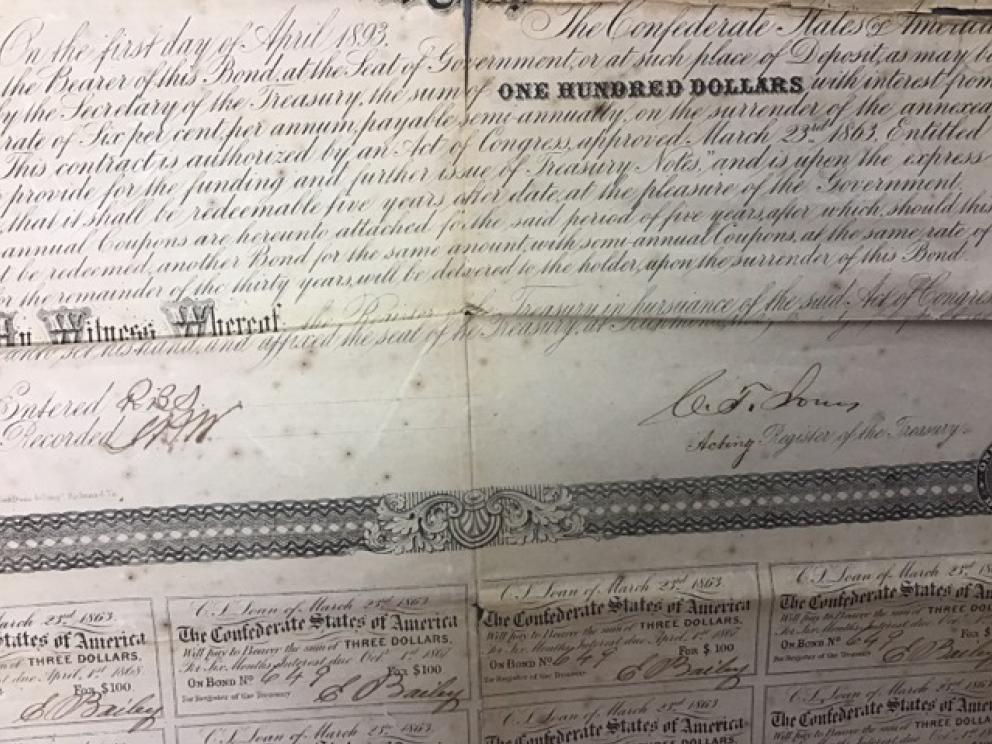 On the first day of April 1893. The Confederate States of America
the Bearer of this Bond, at the Seat of Government, or at such place of Deposit, as may be
by the Secretary of the Treasury, the sum of ONE HUNDRED DOLLARS with interest from
rate of Six per cent, per annum, payable semi-annually, on the surrender of the annexed
This contract is authorized by an Act of Congress, approved March 23rd 1863. Entitled
provide for the funding and further issue of Treasury Notes," and is upon the express
that it shall be redeemable five years after date, at the pleasure of the Government.
annual Coupons are hereunto attached for the said period of five years, after which, should this
be redeemed, another Bond for the same amount, with semi-annual Coupons, at the same rate of
the remainder of the thirty years, will be delivered to the holder, upon the surrender of this Bond.
In Witness Whereof the Register of the Treasury, in pursuance of the said Act of Congress
set his hand, and affixed the seal of the Treasury, at Richmond
Entered
Recorded
C. T. Jones
Acting Register of the Treasury.
March 23rd 1863
States of America
THREE DOLLARS,
due April, 1st 1868
For $100.
E Bailey
C. S. Loan of March 23rd 1863
The Confederate States of America
Will pay to Bearer the sum of THREE DOLLARS,
For Six Months Interest due Octr 1st 1867
For $100
ON BOND No 649
For Register of the Treasury
E Bailey
C. S. Loan of March 23rd 1863
The Confederate States of America
Will pay to Bearer the sum of THREE DOLLARS,
For Six Months Interest due April, 1st 1867
For $100
ON BOND No 649
For Register of the Treasury
E Bailey
C. S. Loan of March 23rd
The Confederate States of
Will pay to Bearer the sum of THREE
For Six Months Interest due
ON BOND No 649
For Register of the Treasury
E Bailey
C. S. Loan of March 23rd 1863
The Confederate States of America
C. S. Loan of March 23rd 1863
The Confederate States of America
Will pay to Bearer the sum of THREE DOLLARS
C. S. Loan of March 23rd
The Confederate States of
Will pay to Bearer the sum of THREE